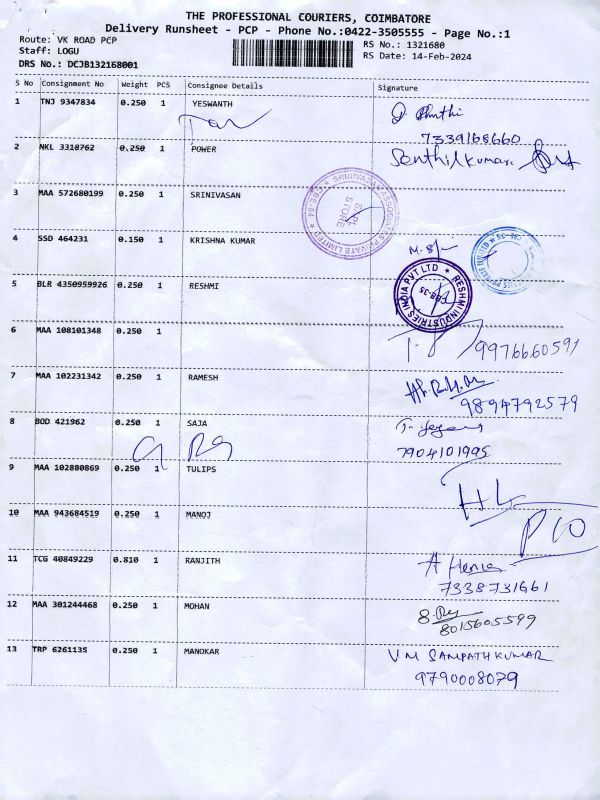 THE PROFESSIONAL COURIERS, COIMBATORE
Delivery Runsheet - PCP - Phone No.:0422-3505555 - Page No.:1
Route: VK ROAD PCP
Staff: LOGU
DRS No.: DCJB132168001
RS No.: 1321680
RS Date: 14-Feb-2024
S No Consignment No Weight PCS Consignee Details Signature
1 TNJ 9347834 0.250 1 YESWANTH
7339168660
2 NKL 3310762 0.250 1 POWER Senthilkumar
3 MAA 572680199 0.250 1 SRINIVASAN
SRINIVASAN ASSOCIATES PRIVATE LIMITED * CBE-04 *
STORE
4 SSD 464231 0.150 1 KRISHNA KUMAR
5 BLR 4350959926 0.250 1 RESHMI
RESHMI INDUSTRIES INDIA PVT LTD *
6 MAA 108101348 0.250 1
9976660591
7 MAA 102231342 0.250 1 RAMESH
9894792579
8 BOD 421962 0.250 1 SAJA
7904101995
9 MAA 102880869 0.250 1 TULIPS
10 MAA 943684519 0.250 1 MANOJ
11 TCG 40849229 0.810 1 RANJITH
7338731661
12 MAA 301244468 0.250 1 MOHAN
8015605599
13 TRP 6261135 0.250 1 MANOKAR V M SAMPATHKUMAR
9790008079